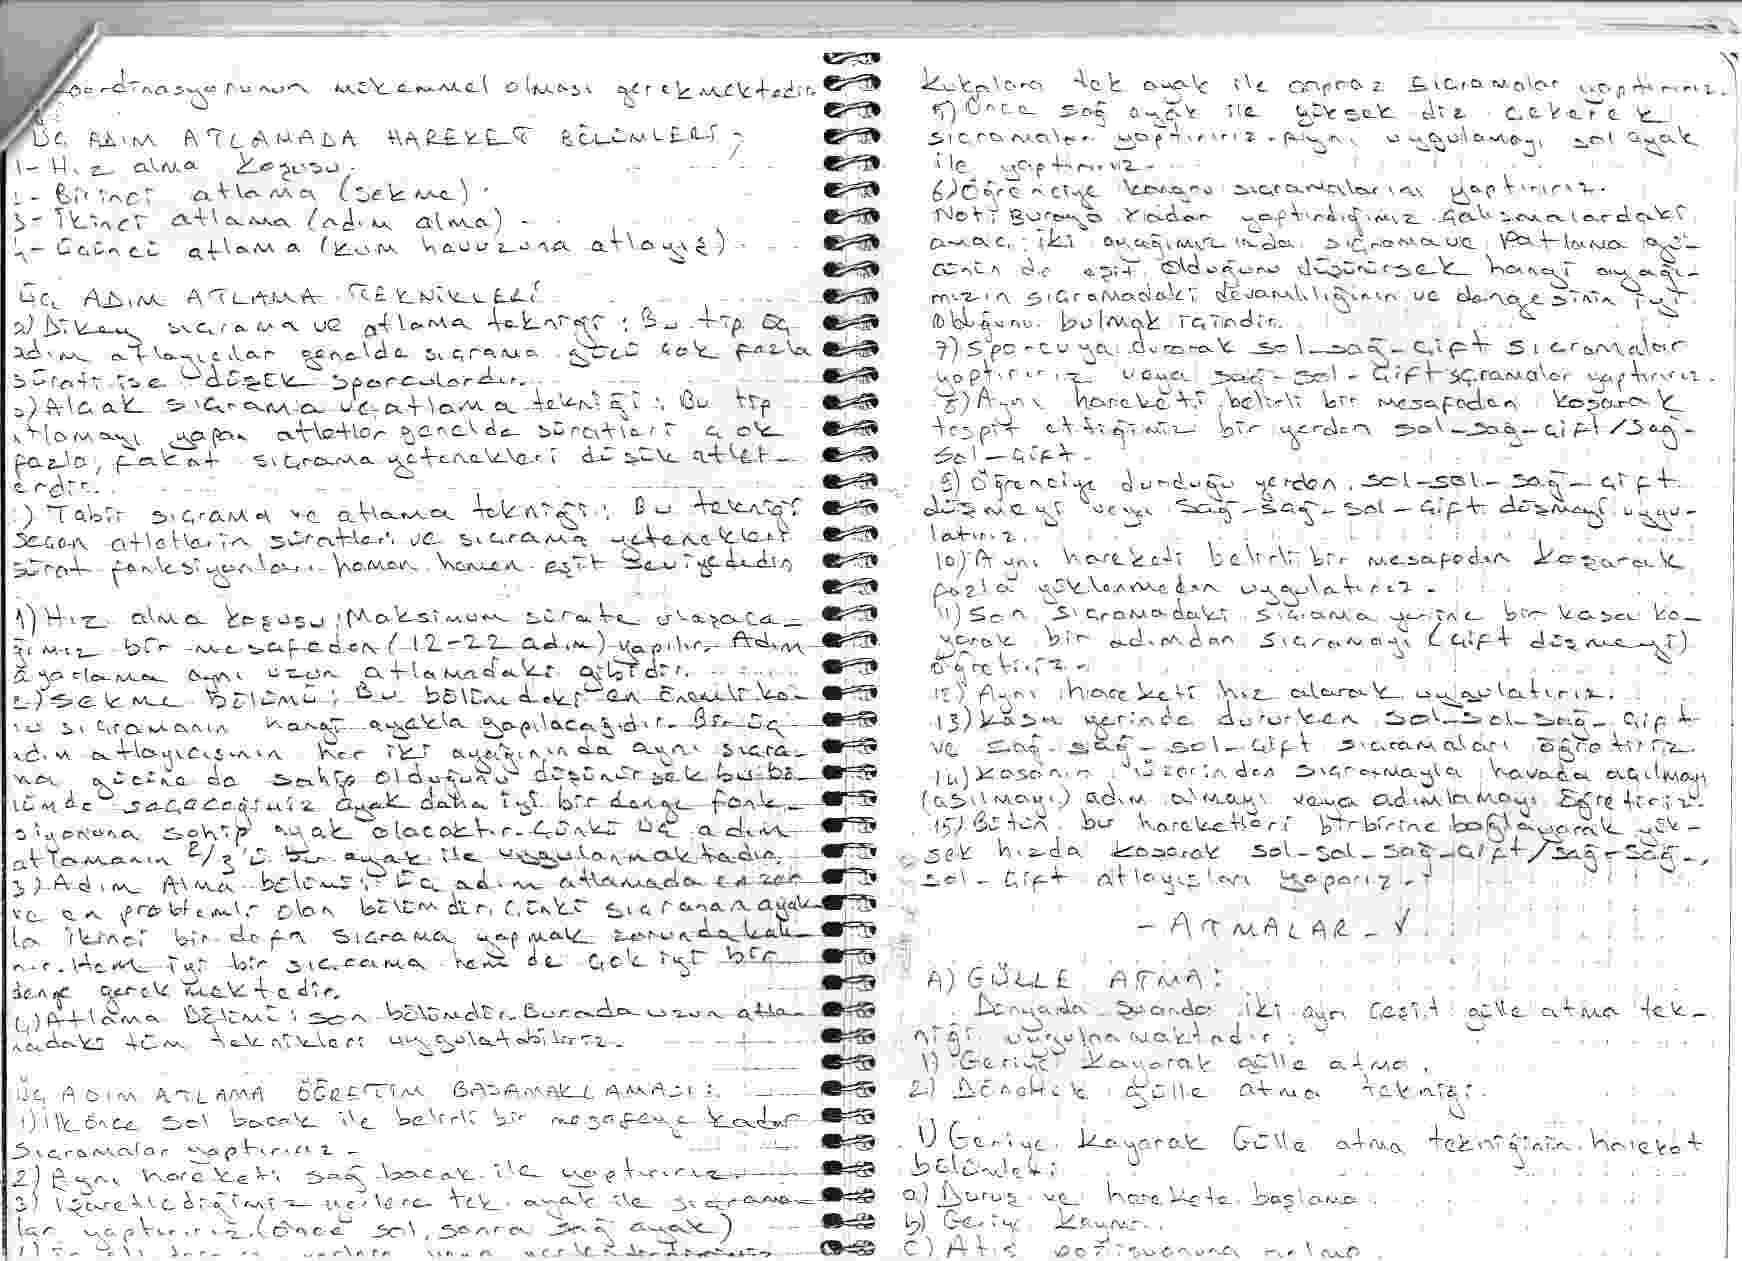 koordinasyonunun mükemmel olması gerekmektedir
ÜÇ ADIM ATLAMADA HAREKET BÖLÜMLERİ;
1- Hız alma koşusu.
2- Birinci atlama (sekme).
3- İkinci atlama (Adım alma).
4- Üçüncü atlama (kum havuzuna atlayış).
ÜÇ ADIM ATLAMA TEKNİKLERİ
a) Dikey sıçrama ve atlama tekniği: Bu tip üç
adım atlayıcılar genelde sıçrama gücü çok fazla
sürati ise düşük sporculardır.
b) Alçak sıçrama ve atlama tekniği: Bu tip
atlamayı yapan atletler genelde süratleri çok
fazla, fakat sıçrama yetenekleri düşük atlet-
lerdir.
c) Tabir sıçrama ve atlama tekniği: Bu tekniği
seçen atletlerin süratleri ve sıçrama yetenekleri
sürat fonksiyonları hemen hemen eşit seviyededir
1) Hız alma koşusu: Maksimum sürate ulaşaca-
ğımız bir mesafeden (12-22 adım) yapılır. Adım
ayarlama aynı uzun atlamadaki gibidir.
2) Sekme bölümü: Bu bölümdeki en önemli ko-
nu sıçramanın hangi ayakla yapılacağıdır. Bir üç
adım atlayıcısının her iki ayağınında aynı sıçra-
ma gücüne de sahip olduğunu düşünürsek bu bö-
lümde seçeceğimiz ayak daha iyi bir denge fonk-
siyonuna sahip ayak olacaktır. Çünkü üç adım
atlamanın 2/3'ü bir ayak ile uygulanmaktadır.
3) Adım Alma bölümü: Üç adım atlamada en zor
ve en problemli olan bölümdür. Çünkü sıçranan ayak
la ikinci bir defa sıçrama yapmak zorunda kalı-
nır. Hem iyi bir sıçrama hem de çok iyi bir
denge gerekmektedir.
4) Atlama Bölümü: Son bölümdür. Burada uzun atla-
madaki tüm teknikleri uygulatabiliriz.
ÜÇ ADIM ATLAMA ÖĞRETİM BASAMAKLAMASI:
1) İlk önce sol bacak ile belirli bir mesafeye kadar
sıçramalar yaptırırız.
2) Aynı hareketi sağ bacak ile yaptırırız.
3) İşaretlediğimiz yerlere tek ayak ile sıçrama-
lar yaptırırız. (önce sol, sonra sağ ayak)
Kukalara tek ayak ile çapraz sıçramalar yaptırırız.
5) Önce sağ ayak ile yüksek diz çekerek
sıçramalar yaptırırız. Aynı uygulamayı sol ayak
ile yaptırırız.
6) Öğrenciye kanguru sıçramalarını yaptırırız.
Not: Buraya kadar yaptırdığımız çalışmalardaki
amaç: iki ayağımızında sıçrama ve patlama gü-
cünün de eşit olduğunu düşünürsek hangi ayağı-
mızın sıçramadaki devamlılığının ve dengesinin iyi
olduğunu bulmak içindir.
7) Sporcuya durarak sol-sağ-çift sıçramalar
yaptırırız veya sağ-sol-çift sıçramalar yaptırırız.
8) Aynı hareketi belirli bir mesafeden koşarak
tespit ettiğimiz bir yerden sol-sağ-çift/sağ-
sol-çift.
9) Öğrenciye durduğu yerden sol-sol-sağ-çift
düşmeyi veya sağ-sağ-sol-çift düşmeyi uygu-
latırız.
10) Aynı hareketi belirli bir mesafeden koşarak
fazla yüklenmeden uygulatırız.
11) Son sıçramadaki sıçrama yerine bir kasa ko-
yarak bir adımdan sıçramayı (çift düşmeyi)
öğretiriz.
12) Aynı hareketi hız alarak uygulatırız.
13) Kasa yerinde dururken sol-sol-sağ-çift
ve sağ-sağ-sol-çift sıçramaları öğretiriz.
14) Kasanın üzerinden sıçramayla havada açılmayı
(asılmayı) adım almayı veya adımlamayı öğretiriz.
15) Bütün bu hareketleri birbirine bağlayarak yük-
sek hızda koşarak sol-sol-sağ-çift/sağ-sağ-
sol-çift atlayışları yaparız.
- ATMALAR - √
A) GÜLLE ATMA:
Dünyada şuanda iki ayrı çeşit gülle atma tek-
niği uygulanmaktadır:
1) Geriye kayarak gülle atma.
2) Dönerek gülle atma tekniği.
1) Geriye kayarak Gülle atma tekniğinin hareket
bölümleri:
a) Duruş ve harekete başlama.
b) Geriye kayma.
c) Atış pozisyonuna gelme.